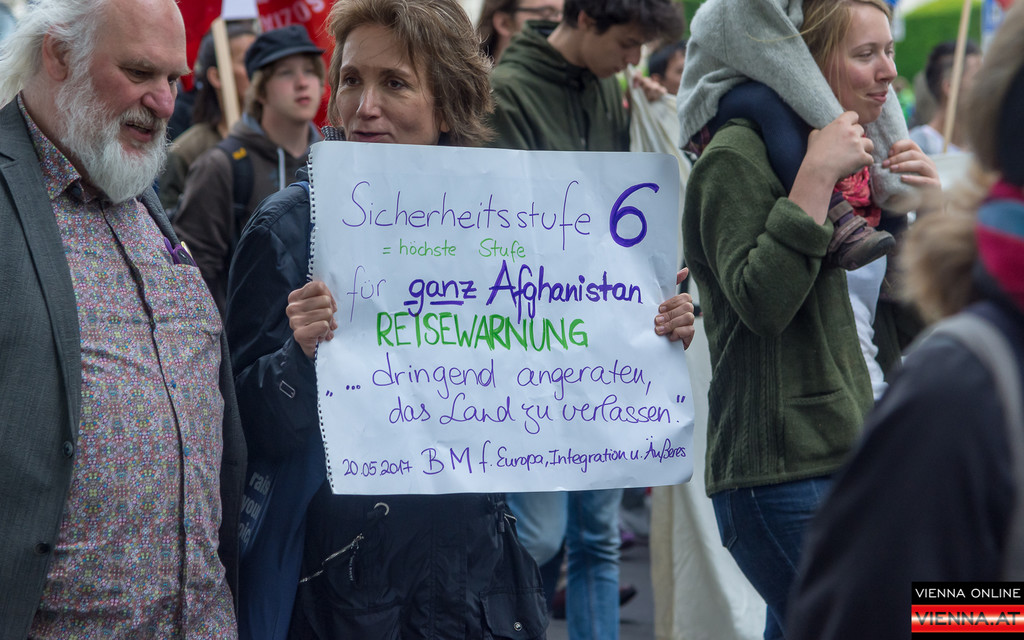 Sicherheitsstufe 6
= höchste Stufe
für ganz Afghanistan
REISEWARNUNG
"... dringend angeraten,
das Land zu verlassen."
20.05.2017 BM f. Europa, Integration u. Äußeres
VIENNA ONLINE
VIENNA.AT